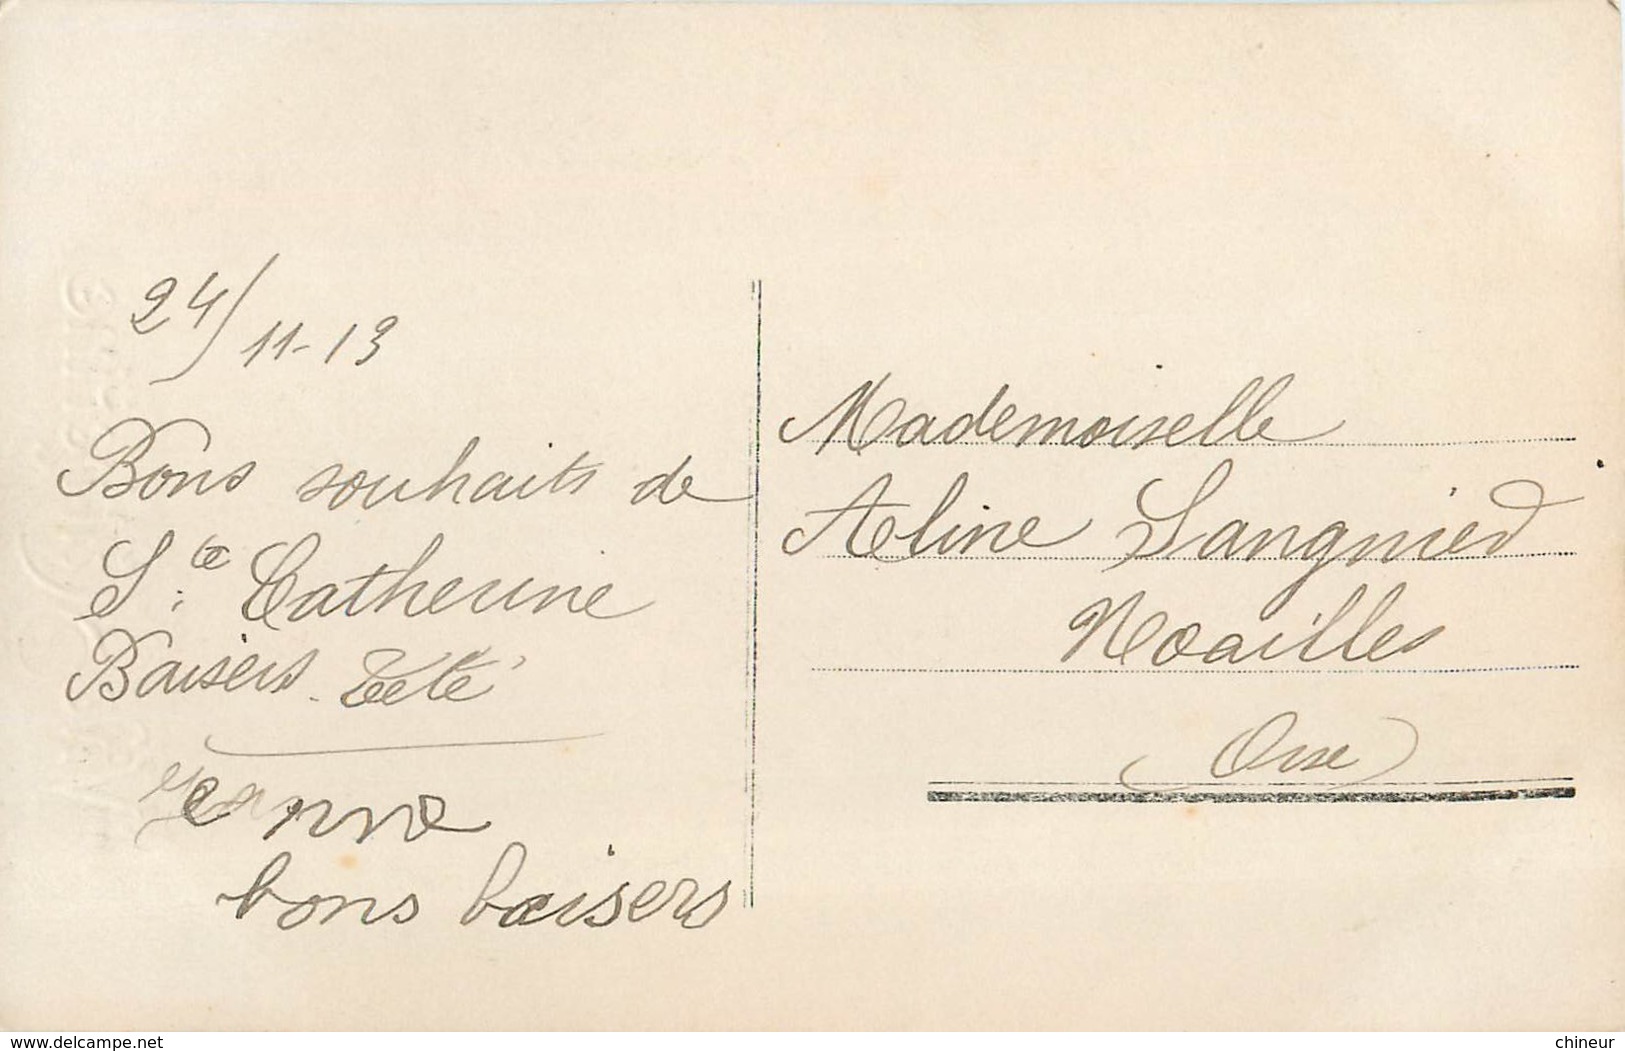 24/11-13
Bons souhaits de
Ste Catherine
Baisers. Tété
bons baisers
Mademoiselle
Aline Sangnier
Noailles
(Oise)
www.delcampe.net
chineur